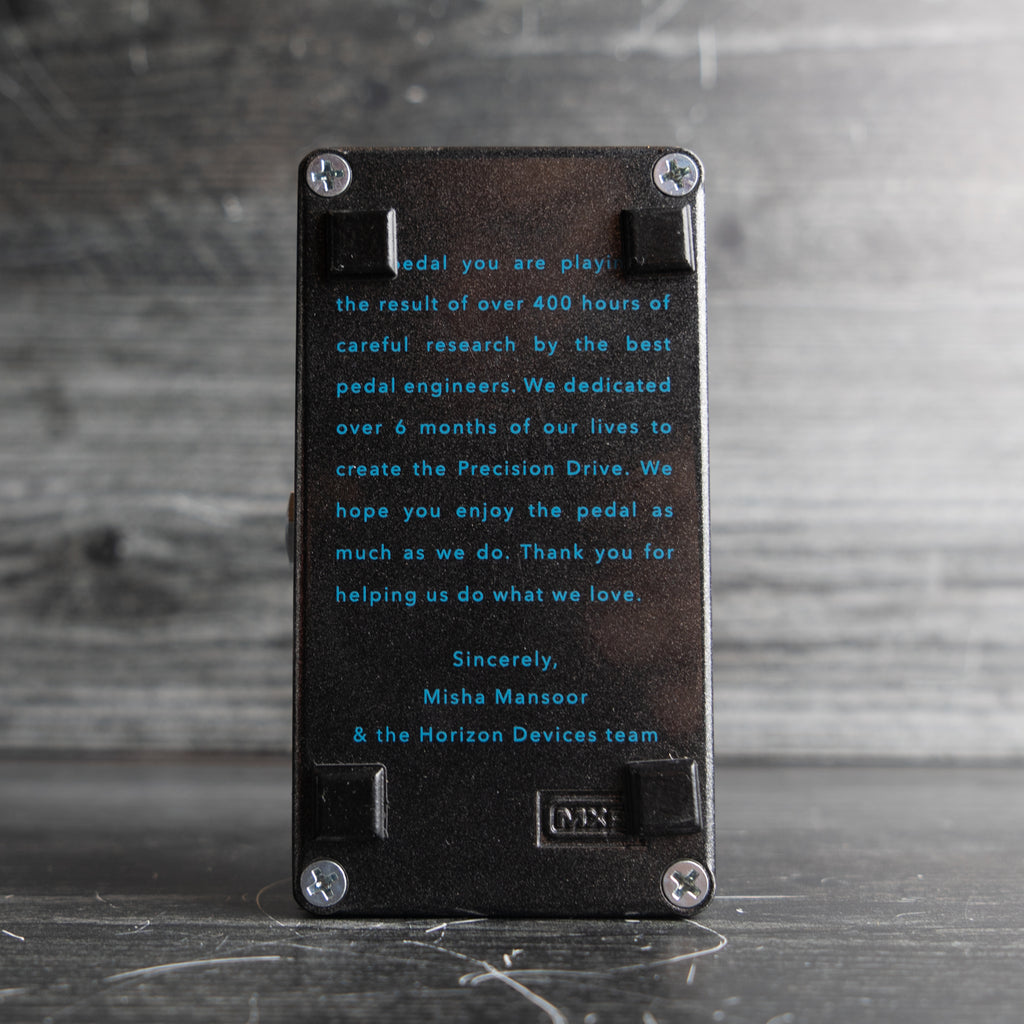 pedal you are playi
the result of over 400 hours of
careful research by the best
pedal engineers. We dedicated
over 6 months of our lives to
create the Precision Drive. We
hope you enjoy the pedal as
much as we do. Thank you for
helping us do what we love.
Sincerely,
Misha Mansoor
& the Horizon Devices team
MX